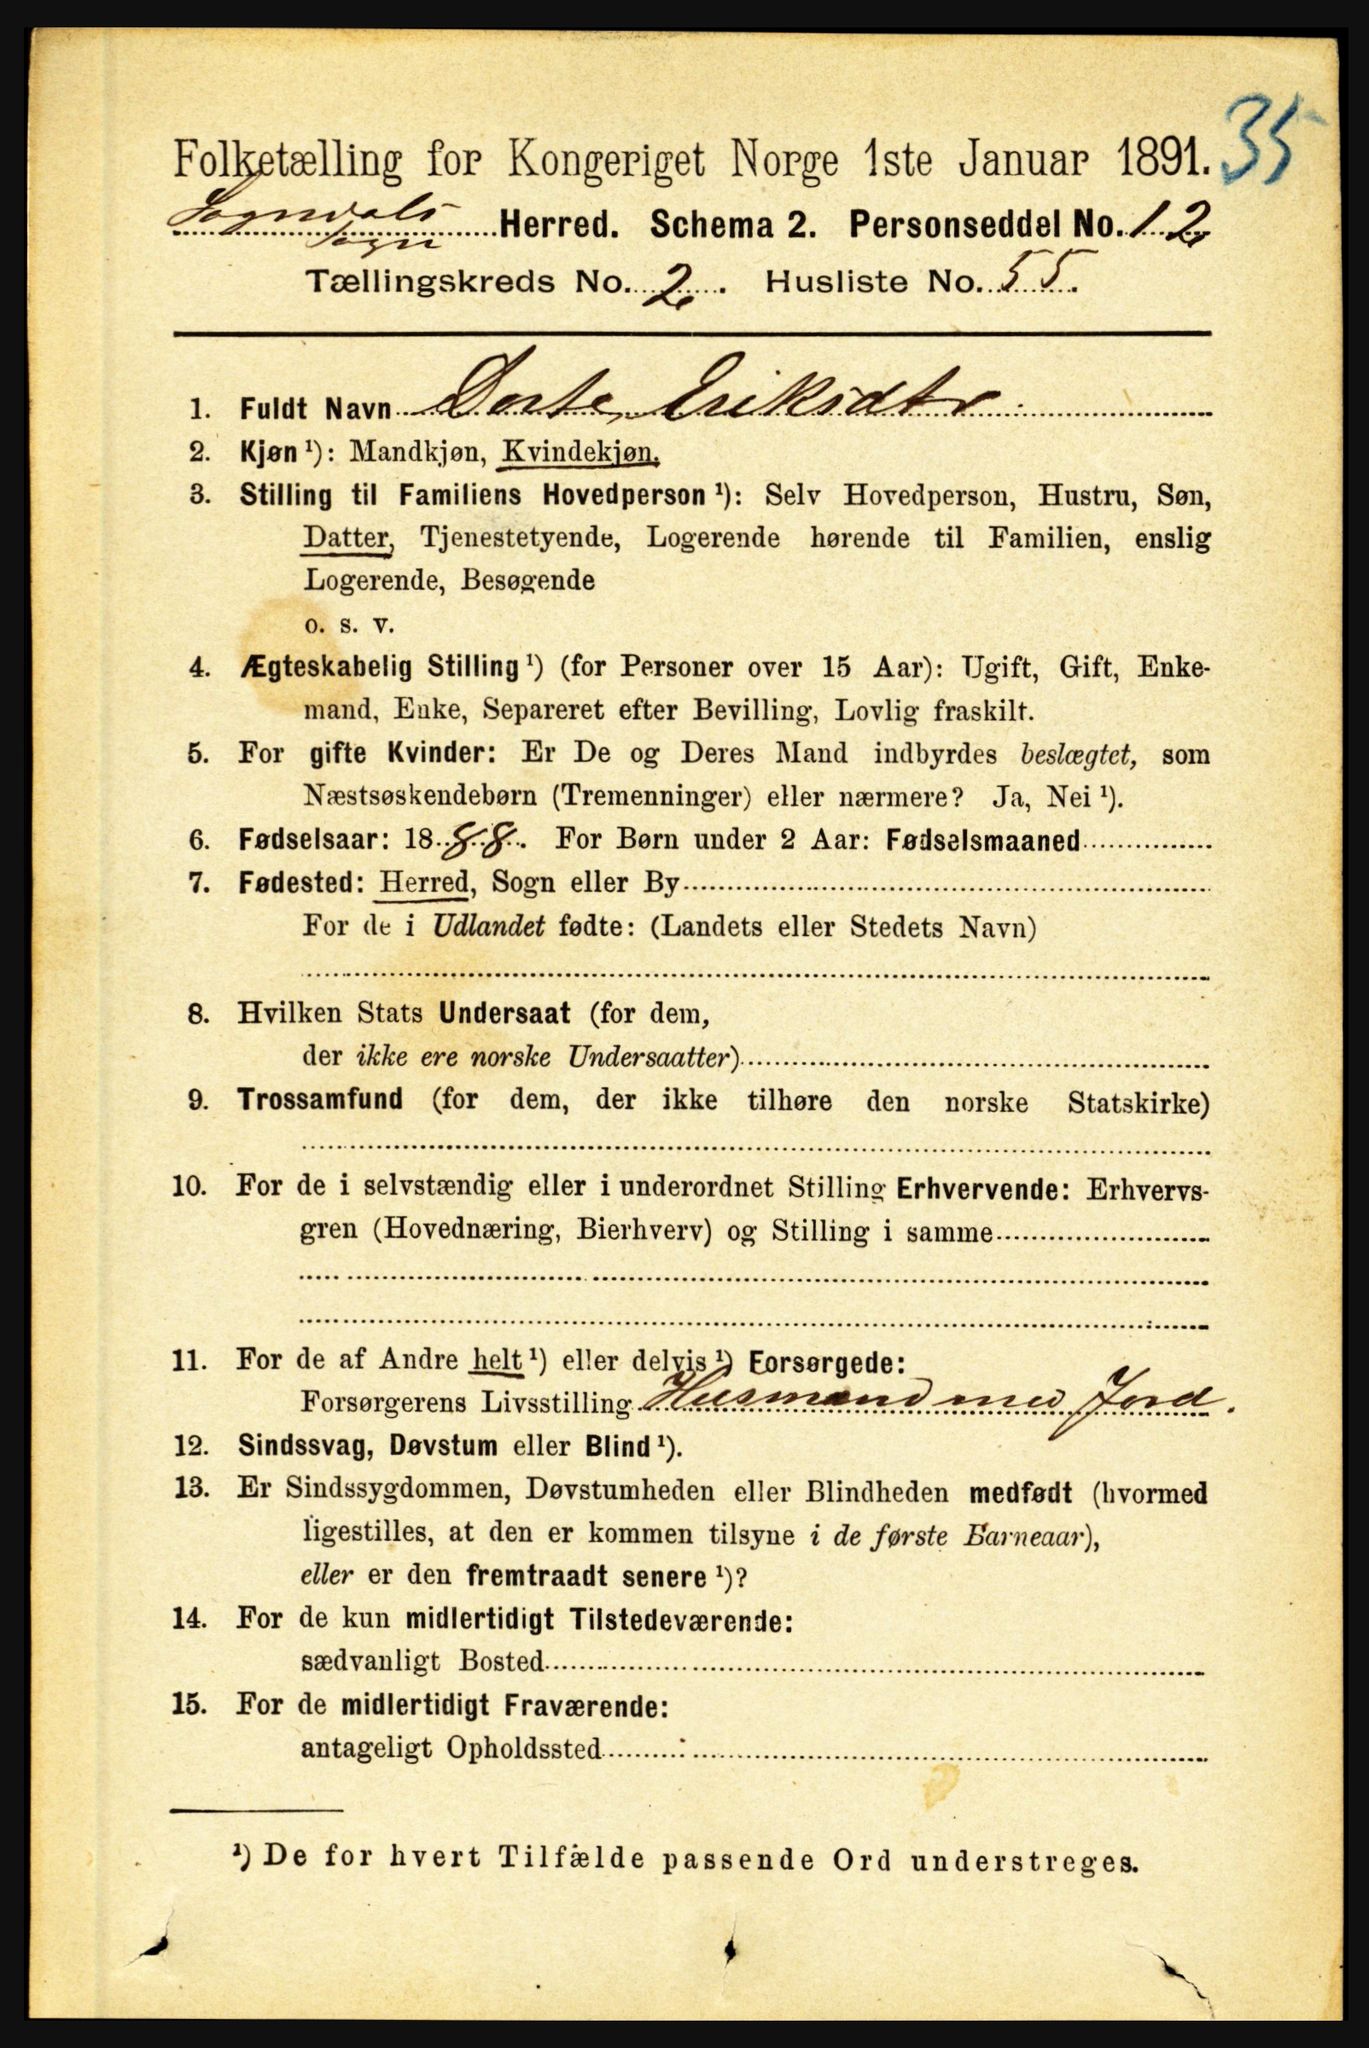 35
Folketælling for Kongeriget Norge 1ste Januar 1891.
Sogndals Sogn Herred. Schema 2. Personseddel No. 12
Tællingskreds No. 2. Husliste No. 55.
1. Fuldt Navn Dorte Eriksdtr
2. Kjøn ¹): Mandkjøn, Kvindekjøn.
3. Stilling til Familiens Hovedperson ¹): Selv Hovedperson, Hustru, Søn,
Datter, Tjenestetyende, Logerende hørende til Familien, enslig
Logerende, Besøgende
o. s. v.
4. Ægteskabelig Stilling ¹) (for Personer over 15 Aar): Ugift, Gift, Enke-
mand, Enke, Separeret efter Bevilling, Lovlig fraskilt.
5. For gifte Kvinder: Er De og Deres Mand indbyrdes beslægtet, som
Næstsøskendebørn (Tremenninger) eller nærmere? Ja, Nei ¹).
6. Fødselsaar: 1888. For Børn under 2 Aar: Fødselsmaaned
7. Fødested: Herred, Sogn eller By
For de i Udlandet fødte: (Landets eller Stedets Navn)
8. Hvilken Stats Undersaat (for dem,
der ikke ere norske Undersaatter)
9. Trossamfund (for dem, der ikke tilhøre den norske Statskirke)
10. For de i selvstændig eller i underordnet Stilling Erhvervende: Erhvervs-
gren (Hovednæring, Bierhverv) og Stilling i samme
11. For de af Andre helt ¹) eller delvis ¹) Forsørgede:
Forsørgerens Livsstilling Husmand med Jord.
12. Sindssvag, Døvstum eller Blind ¹).
13. Er Sindssygdommen, Døvstumheden eller Blindheden medfødt (hvormed
ligestilles, at den er kommen tilsyne i de første Barneaar),
eller er den fremtraadt senere ¹)?
14. For de kun midlertidigt Tilstedeværende:
sædvanligt Bosted
15. For de midlertidigt Fraværende:
antageligt Opholdssted
¹) De for hvert Tilfælde passende Ord understreges.